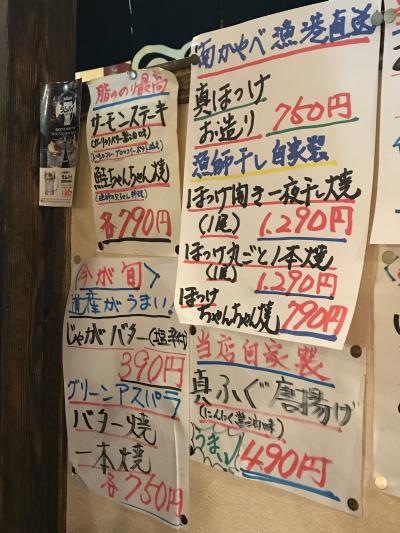 脂のり最高
サーモンステーキ
(ガーリックバター醤油味)
鮭ちゃんちゃん焼
各790円
南かやべ漁港直送
真ほっけ
お造り 750円
漁師干し自家製
ほっけ開き一夜干し焼
(1尾) 1,290円
ほっけ丸ごと1本焼
(1尾) 1,290円
ほっけ
ちゃんちゃん焼 790円
〈今が旬〉
道産がうまい!
じゃがバター(塩辛付)
390円
グリーンアスパラ
バター焼
一本焼
各750円
当店自家製
真ふぐ唐揚げ
(にんにく醤油味)
うまい 490円